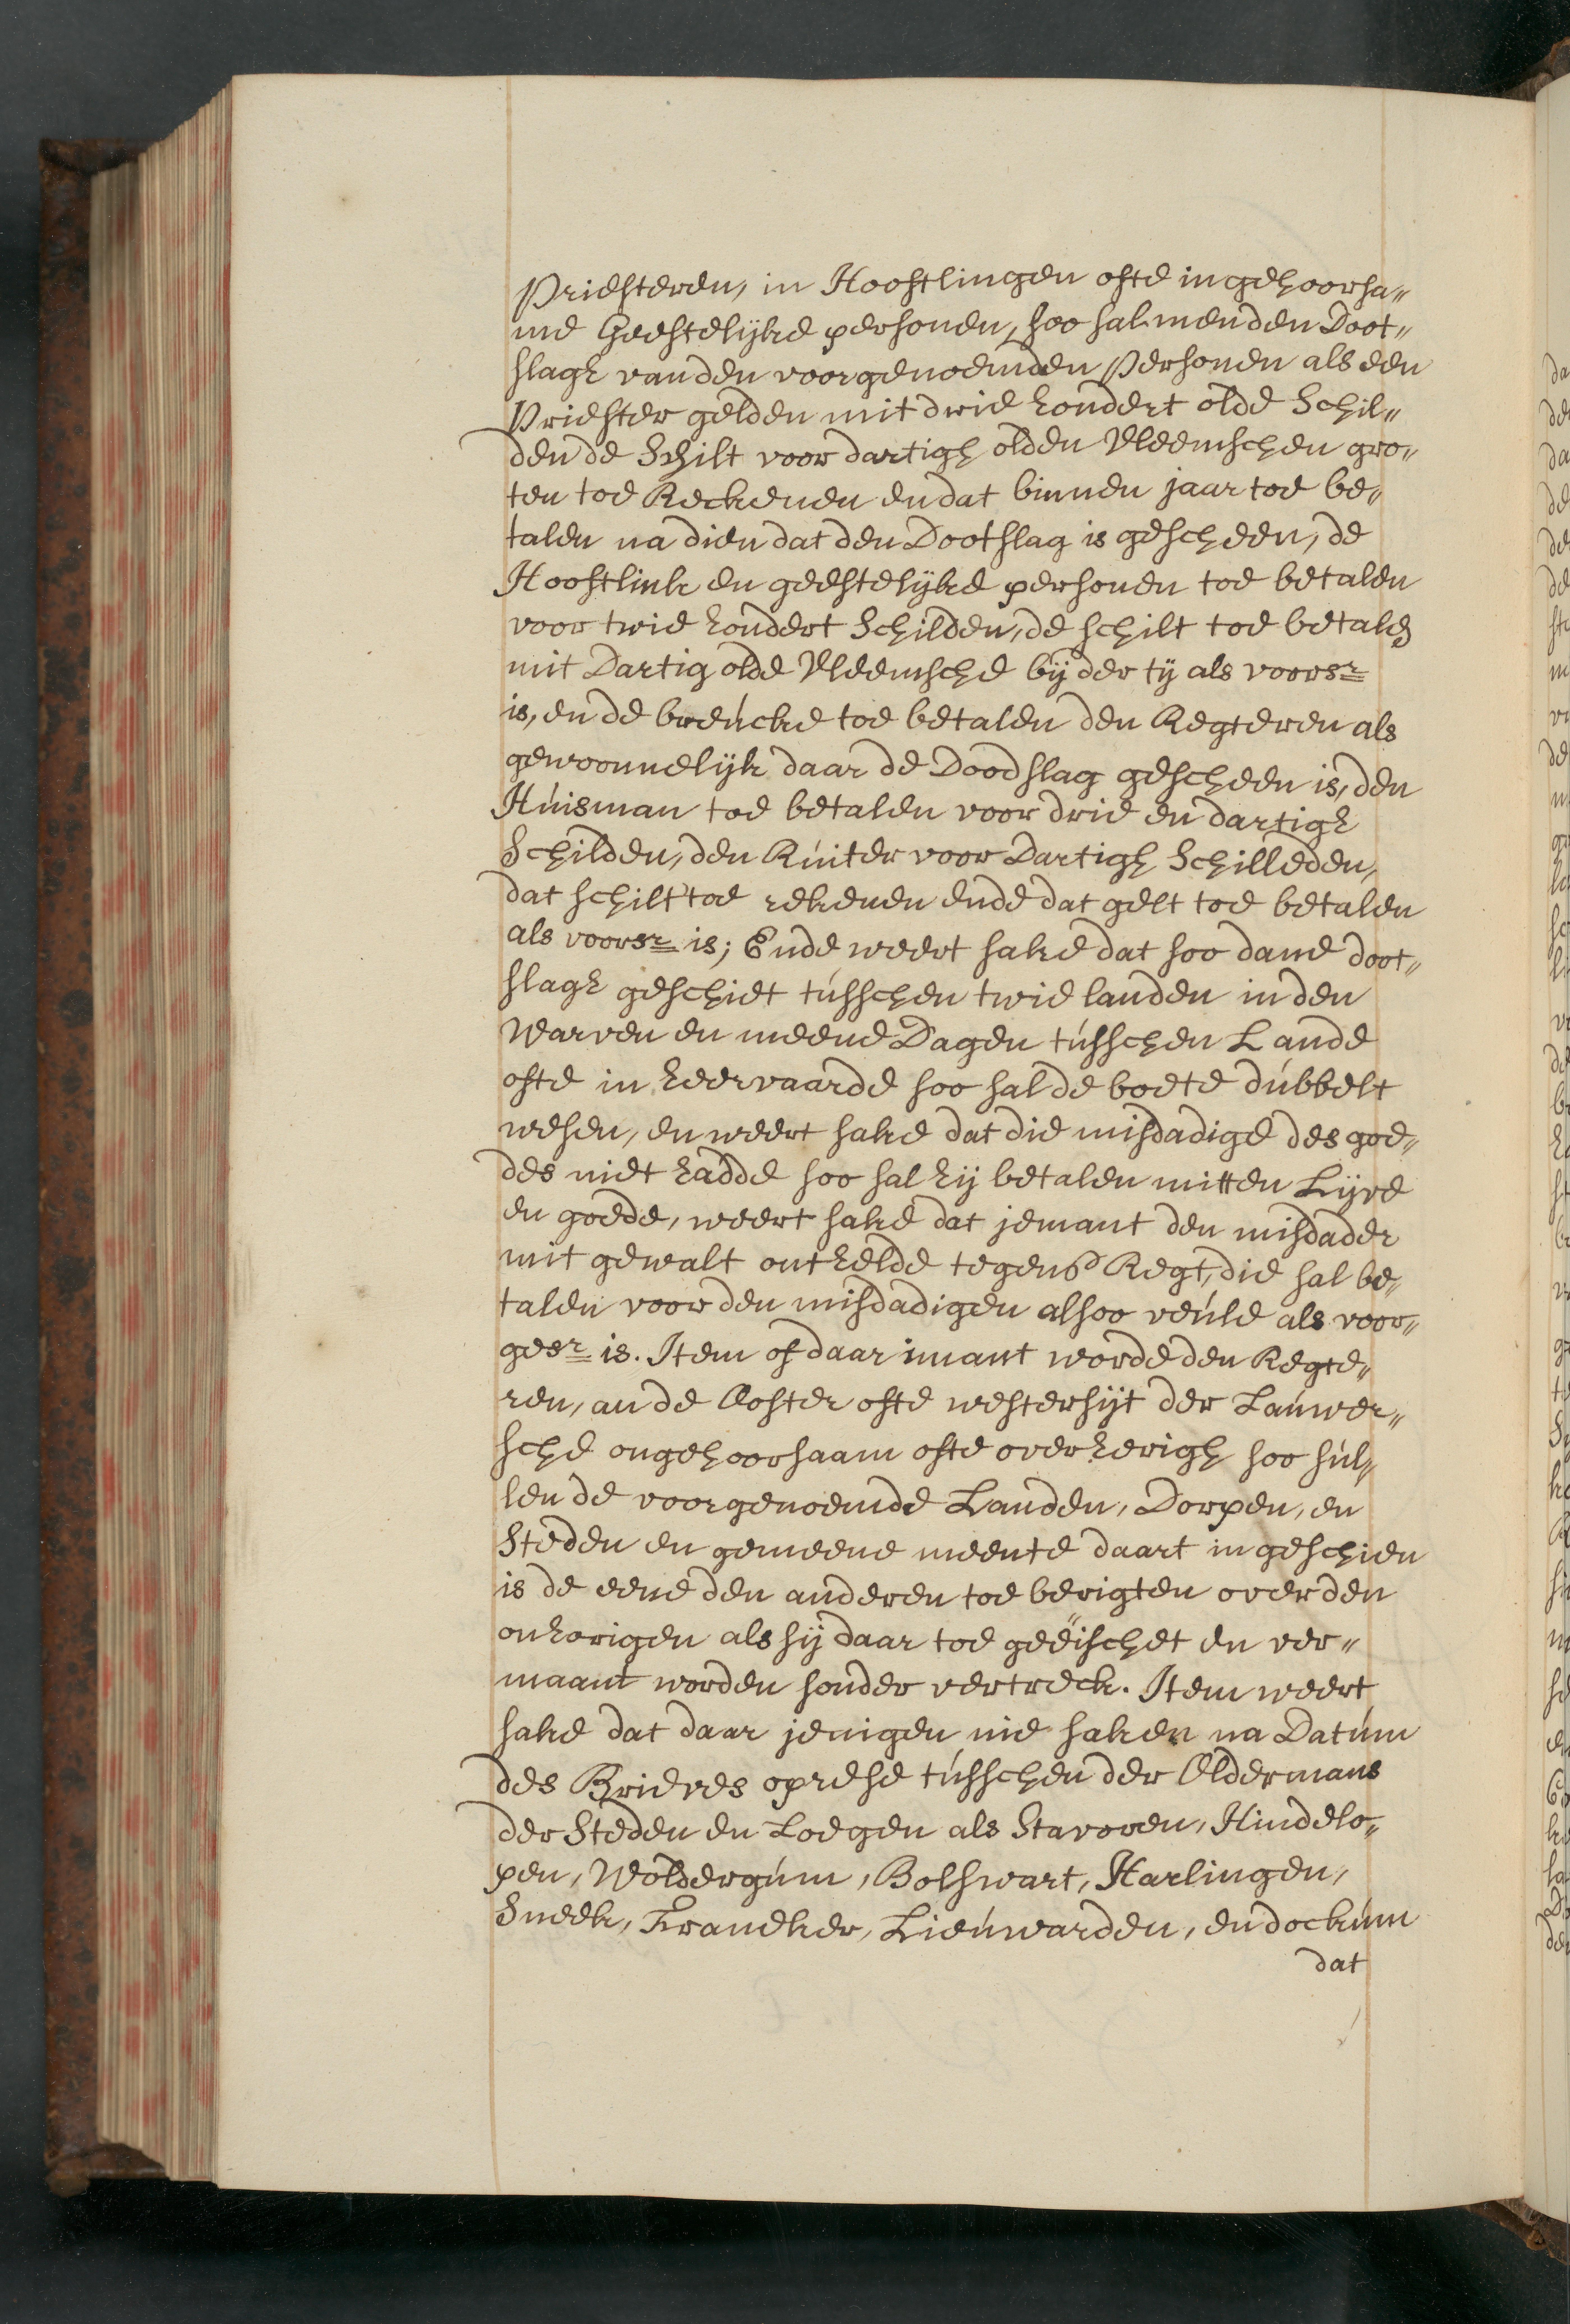 Priesteren, in Hooftlingen ofte in gehoorsa„
me Geestelyke personen, soo sal men den Doot„
slagh van den voorgenoemden Persoonen als een
Priester gelden mit drie hondert olde Schil„
den de Schilt voor dartigh olden Vleemschen gro„
ten toe Reckenen en dat binnen jaar toe be„
talen na dien dat den Dootslag is gescheen, de
Hooftlink en geestelijke personen toe betalen
voor twie hondert Schilden, de schilt toe betalen
mit Dartig olde Vleemsche bij der tij als voorsr
is, en de breücke toe betalen den Regteren als
gewoonnelijk daar de Doodslag gescheen is, den
Húisman toe betalen voor drie en dartigh
Schilden, den Rúiter voor Dartigh Schilleden,
dat schilt toe rekenen ende dat gelt toe betalen
als voorsr is; Ende weert sake dat soo dane doot„
slagh geschiet tússchen twie landen in den
Warven en meene Dagen tússchen Lande
ofte in heervaarde soo sal de boete dúbbelt
wesen, en weert sake dat die misdadige des goe„
des niet hadde soo sal hij betalen mitten Lijve
en goede, weert sake dat jemant den misdader
mit gewalt onthelde tegens Regt, die sal be„
talen voor den misdadigen alsoo veúle als voor„
gesr is. Item of daar imant worde den Regte„
ren, an de Ooster ofte westersijt der Laúwer„
sche ongehoorsaam ofte overherigh soo súl„
len de voorgenoemde Landen, Dorpen, en
Steden en gemeene meente daart in geschien
is de eene den anderen toe berigten over den
onhorigen als sij daar toe geëischet en ver„
maant worden sonder vertreck. Item weert
sake dat daar jenigen nie saken na Datúm
des Brieves oprese tússchen der Oldermans
der Steden en Loegen als Stavoren, Hindelo„
pen, Woldergúm, Bolswart, Harlingen,
Sneek, Franeker, Lieúwarden, en dockúm
dat